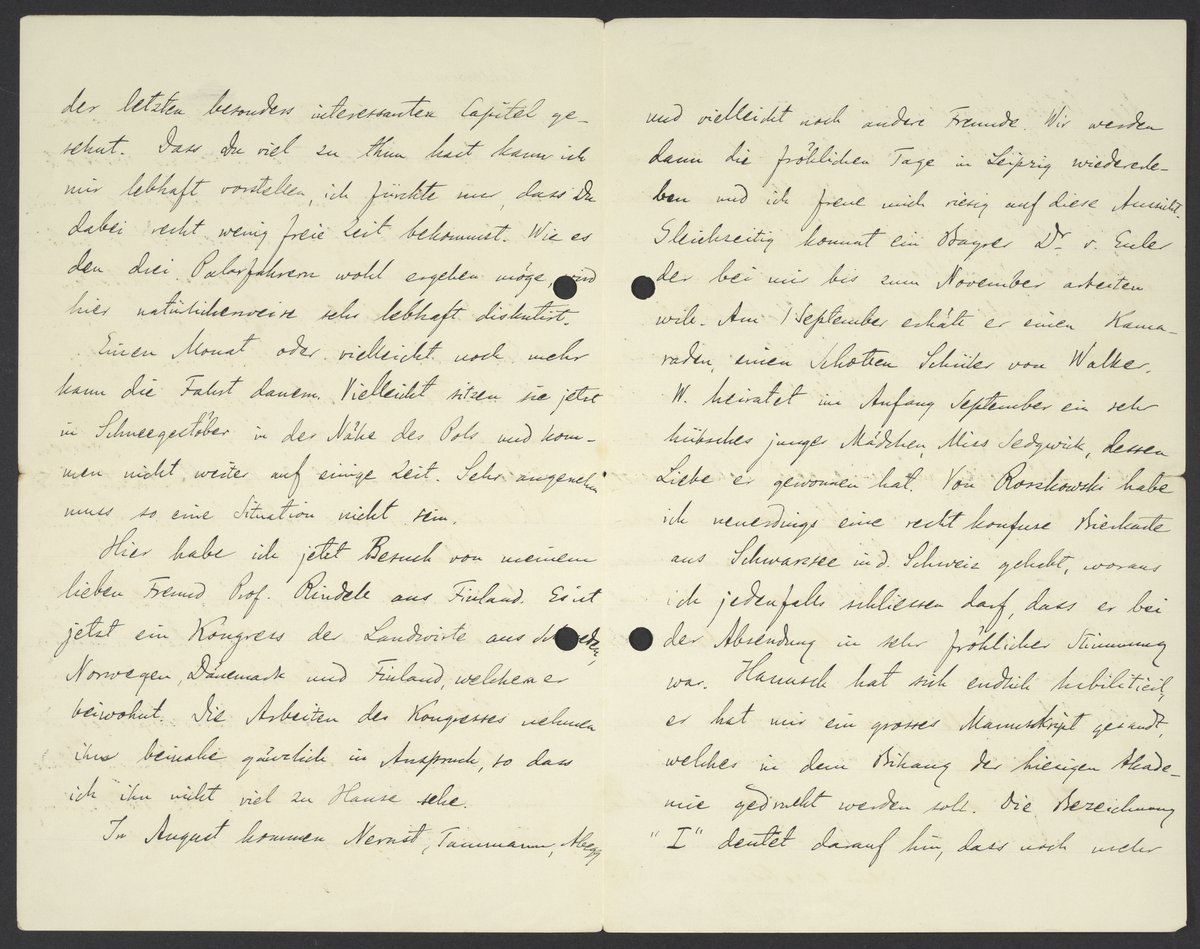 der letzten besonders interessanten Capitel ge-
sehnt. Dass Du viel zu thun hast kann ich
mir lebhaft vorstellen, ich fürchte nur, dass Du
dabei recht wenig freie Zeit bekommst. Wie es
den drei Polarfahrern wohl ergehen möge, wird
hier natürlicherweise sehr lebhaft diskutirt.
Einen Monat oder vielleicht noch mehr
kann die Fahrt dauern. Vielleicht sitzen sie jetzt
in Schneegestöber in der Nähe des Pols und kom-
men nicht weiter auf einige Zeit. Sehr angenehm
muss so eine Situation nicht sein.
Hier habe ich jetzt Besuch von meinem
lieben Freund Prof. Rindell aus Finland. Es ist
jetzt ein Kongress der Landwirte aus Schweden,
Norwegen, Dänemark und Finland, welchem er
beiwohnt. Die Arbeiten des Kongresses nehmen
ihn beinahe gänzlich in Anspruch, so dass
ich ihn nicht viel zu Hause sehe.
In August kommen Nernst, Tammann, Abegg
und vielleicht noch andere Freunde. Wir werden
dann die fröhlichen Tage in Leipzig wiedererle-
ben und ich freue mich riesig auf diese Aussicht.
Gleichzeitig kommt ein Bayrer Dr. v. Euler
der bei mir bis zum November arbeiten
will. Am 1 September erhält er einen Kama-
raden, einen Schotten Schüler von Walker.
W. heiratet im Anfang September ein sehr
hübsches junges Mädchen, Miss Sedgwick, dessen
Liebe er gewonnen hat. Von Roszkowski habe
ich neuerdings eine recht konfuse Bierkarte
aus Schwarzsee in d. Schweiz gehabt, woraus
ich jedenfalls schliessen darf, dass er bei
der Absendung in sehr fröhlicher Stimmung
war. Hamusch hat sich endlich habilitirt,
er hat mir ein grosses Manuskript gesandt,
welches in dem Bihang der hiesigen Akade-
mie gedruckt werden soll. Die Bezeichnung
"I" deutet darauf hin, dass noch mehr